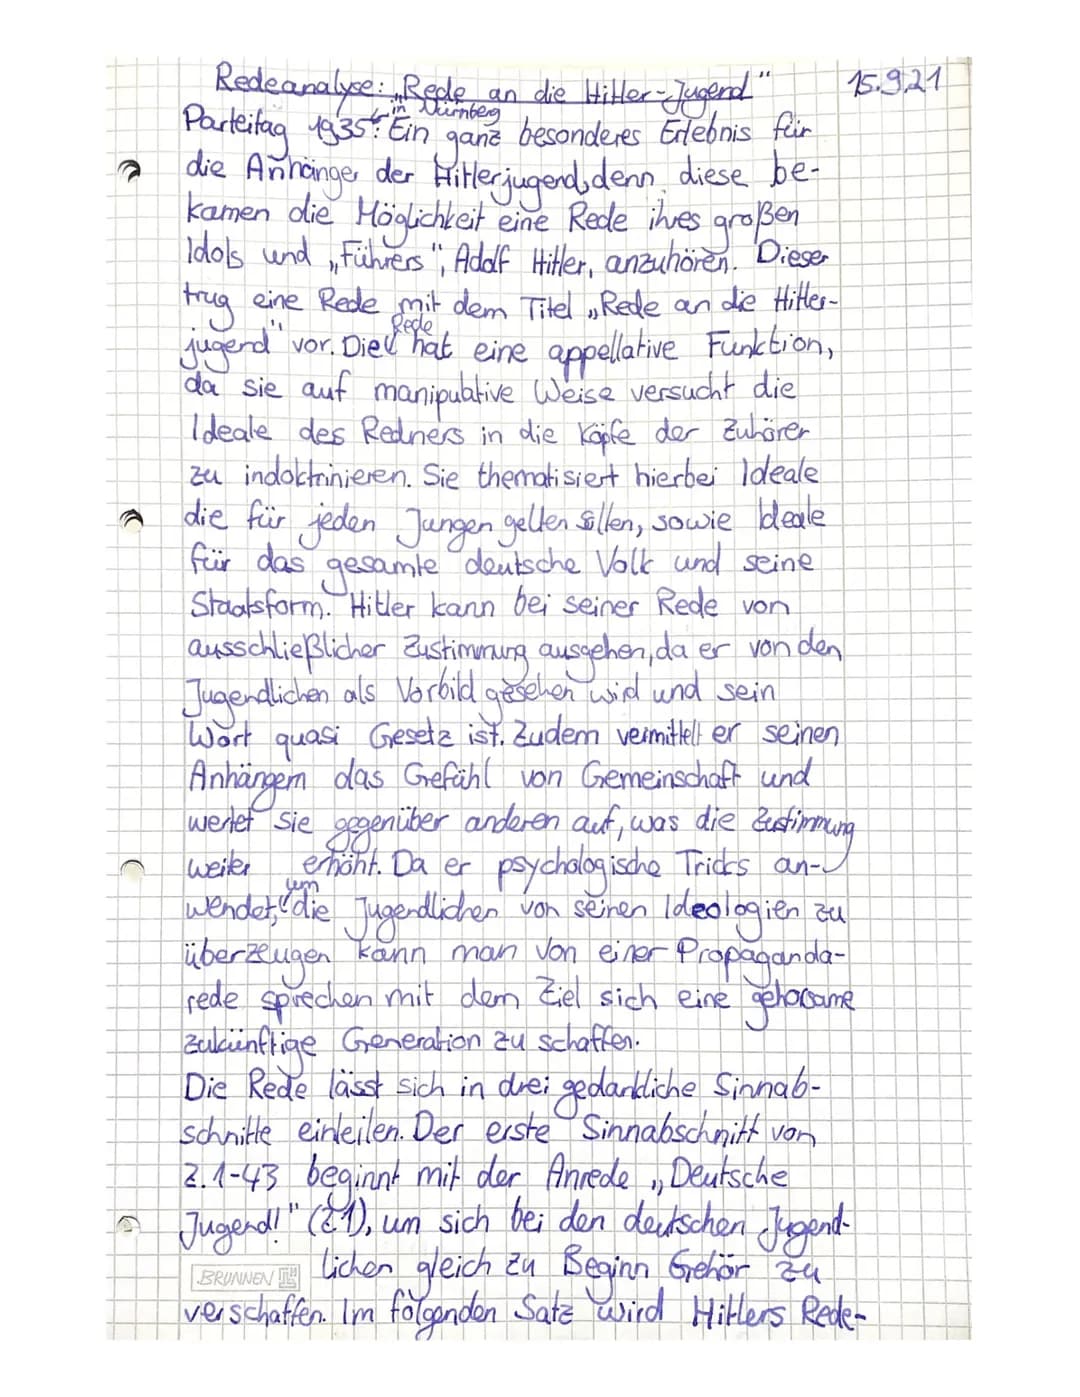 Redeanalyse: „Rede an die Hitler-Jugend" 15.9.21
Parteitag 1935 in Nürnberg: Ein ganz besonderes Erlebnis für
die Anhänger der Hitlerjugend, denn diese be-
kamen die Möglichkeit eine Rede ihres großen
Idols und „Führers", Adolf Hitler, anzuhören. Dieser
trug eine Rede mit dem Titel „Rede an die Hitler-
jugend" vor. Die Rede hat eine appellative Funktion,
da sie auf manipulative Weise versucht die
Ideale des Redners in die Köpfe der Zuhörer
zu indoktrinieren. Sie thematisiert hierbei Ideale
die für jeden Jungen gelten sollen, sowie Ideale
für das gesamte deutsche Volk und seine
Staatsform. Hitler kann bei seiner Rede von
ausschließlicher Zustimmung ausgehen, da er von den
Jugendlichen als Vorbild gesehen wird und sein
Wort quasi Gesetz ist. Zudem vermittelt er seinen
Anhängern das Gefühl von Gemeinschaft und
wertet sie gegenüber anderen auf, was die Zustimmung
weiter erhöht. Da er psychologische Tricks an-
wendet, um die Jugendlichen von seinen Ideologien zu
überzeugen kann man von einer Propaganda-
rede sprechen mit dem Ziel sich eine gehorsame
zukünftige Generation zu schaffen.
Die Rede lässt sich in drei gedankliche Sinnab-
schnitte einteilen. Der erste Sinnabschnitt von
Z. 1-43 beginnt mit der Anrede „Deutsche
Jugend!" (Z.1), um sich bei den deutschen Jugend-
BRUNNEN lichen gleich zu Beginn Gehör zu
verschaffen. Im folgenden Satz wird Hitlers Rede-